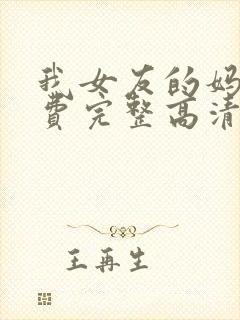 我女友的妈
费完整高清
王再生